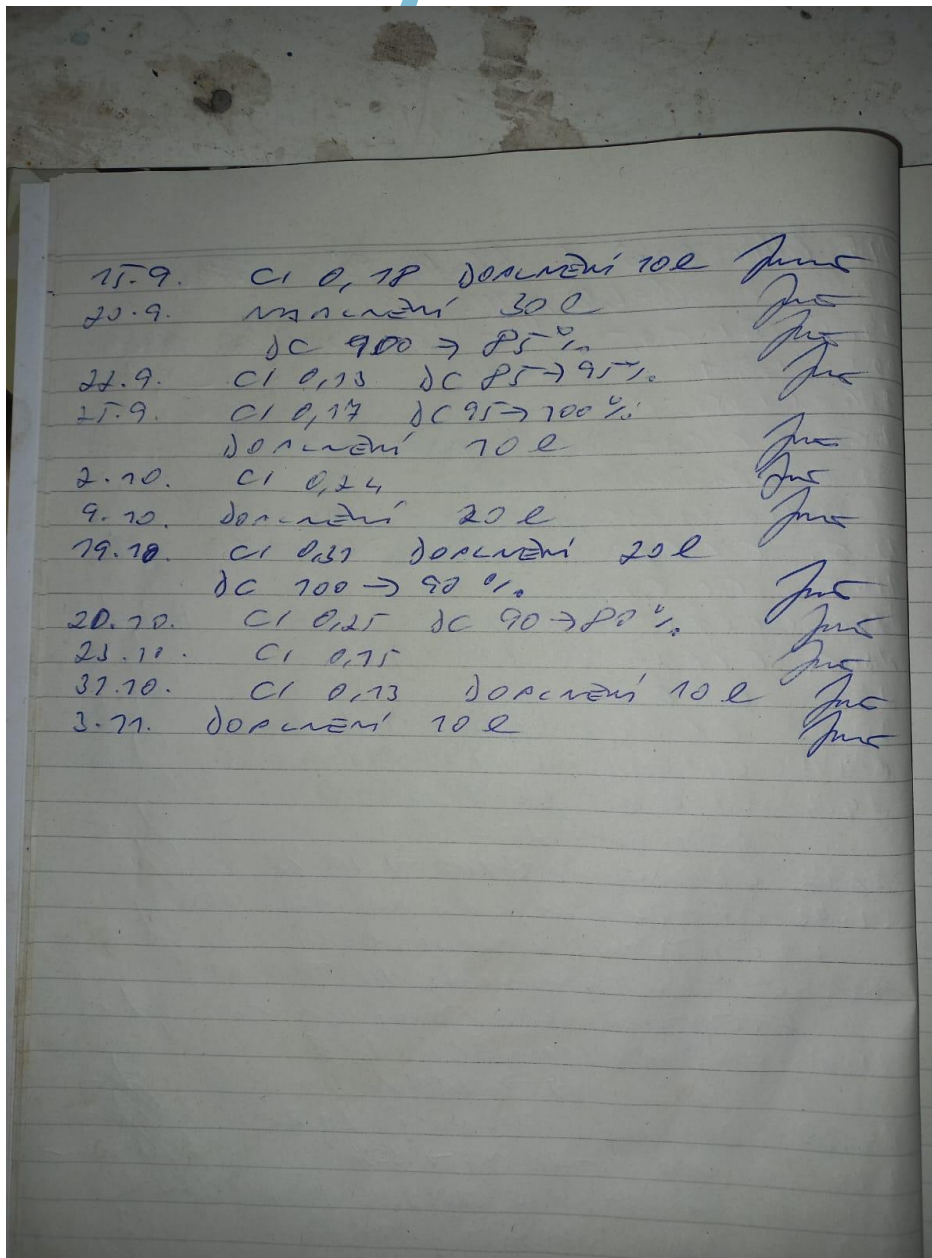 15.9. Cl 0,18 DOPLNĚNÍ 10 l
20.9. NAPLNĚNÍ 30 l
DC 900 → 85 %
22.9. Cl 0,13 DC 85 → 95 %
25.9. Cl 0,17 DC 95 → 100 %
DOPLNĚNÍ 10 l
2.10. Cl 0,24
9.10. DOPLNĚNÍ 20 l
19.10. Cl 0,31 DOPLNĚNÍ 20 l
DC 100 → 90 %
20.10. Cl 0,25 DC 90 → 80 %
23.10. Cl 0,15
31.10. Cl 0,13 DOPLNĚNÍ 10 l
3.11. DOPLNĚNÍ 10 l